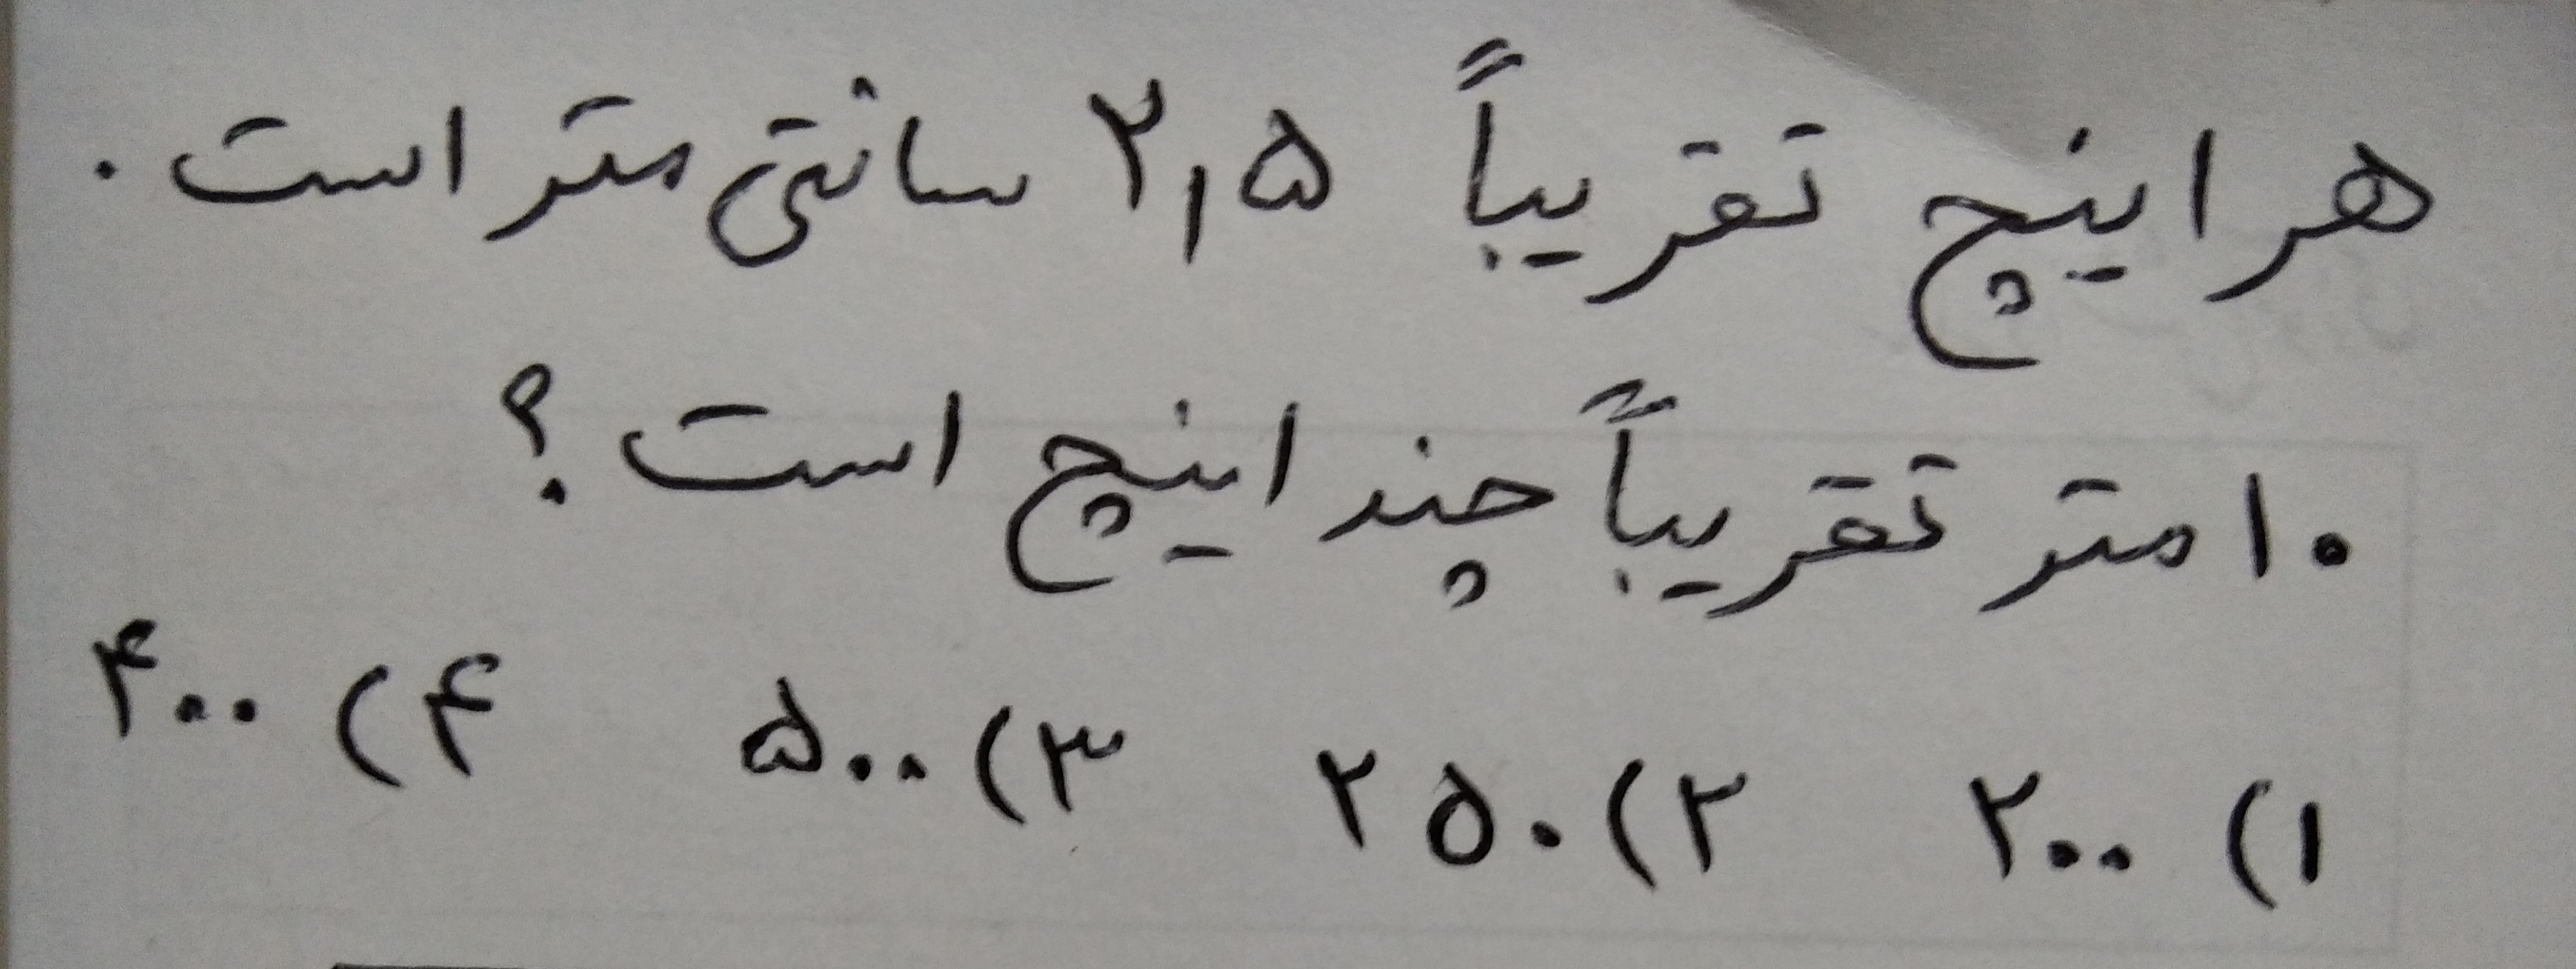 هر اینچ تقریباً ۲٫۵ سانتی متر است.
۱۰ متر تقریباً چند اینچ است؟
۱) ۲۰۰ ۲) ۲۵۰ ۳) ۵۰۰ ۴) ۴۰۰